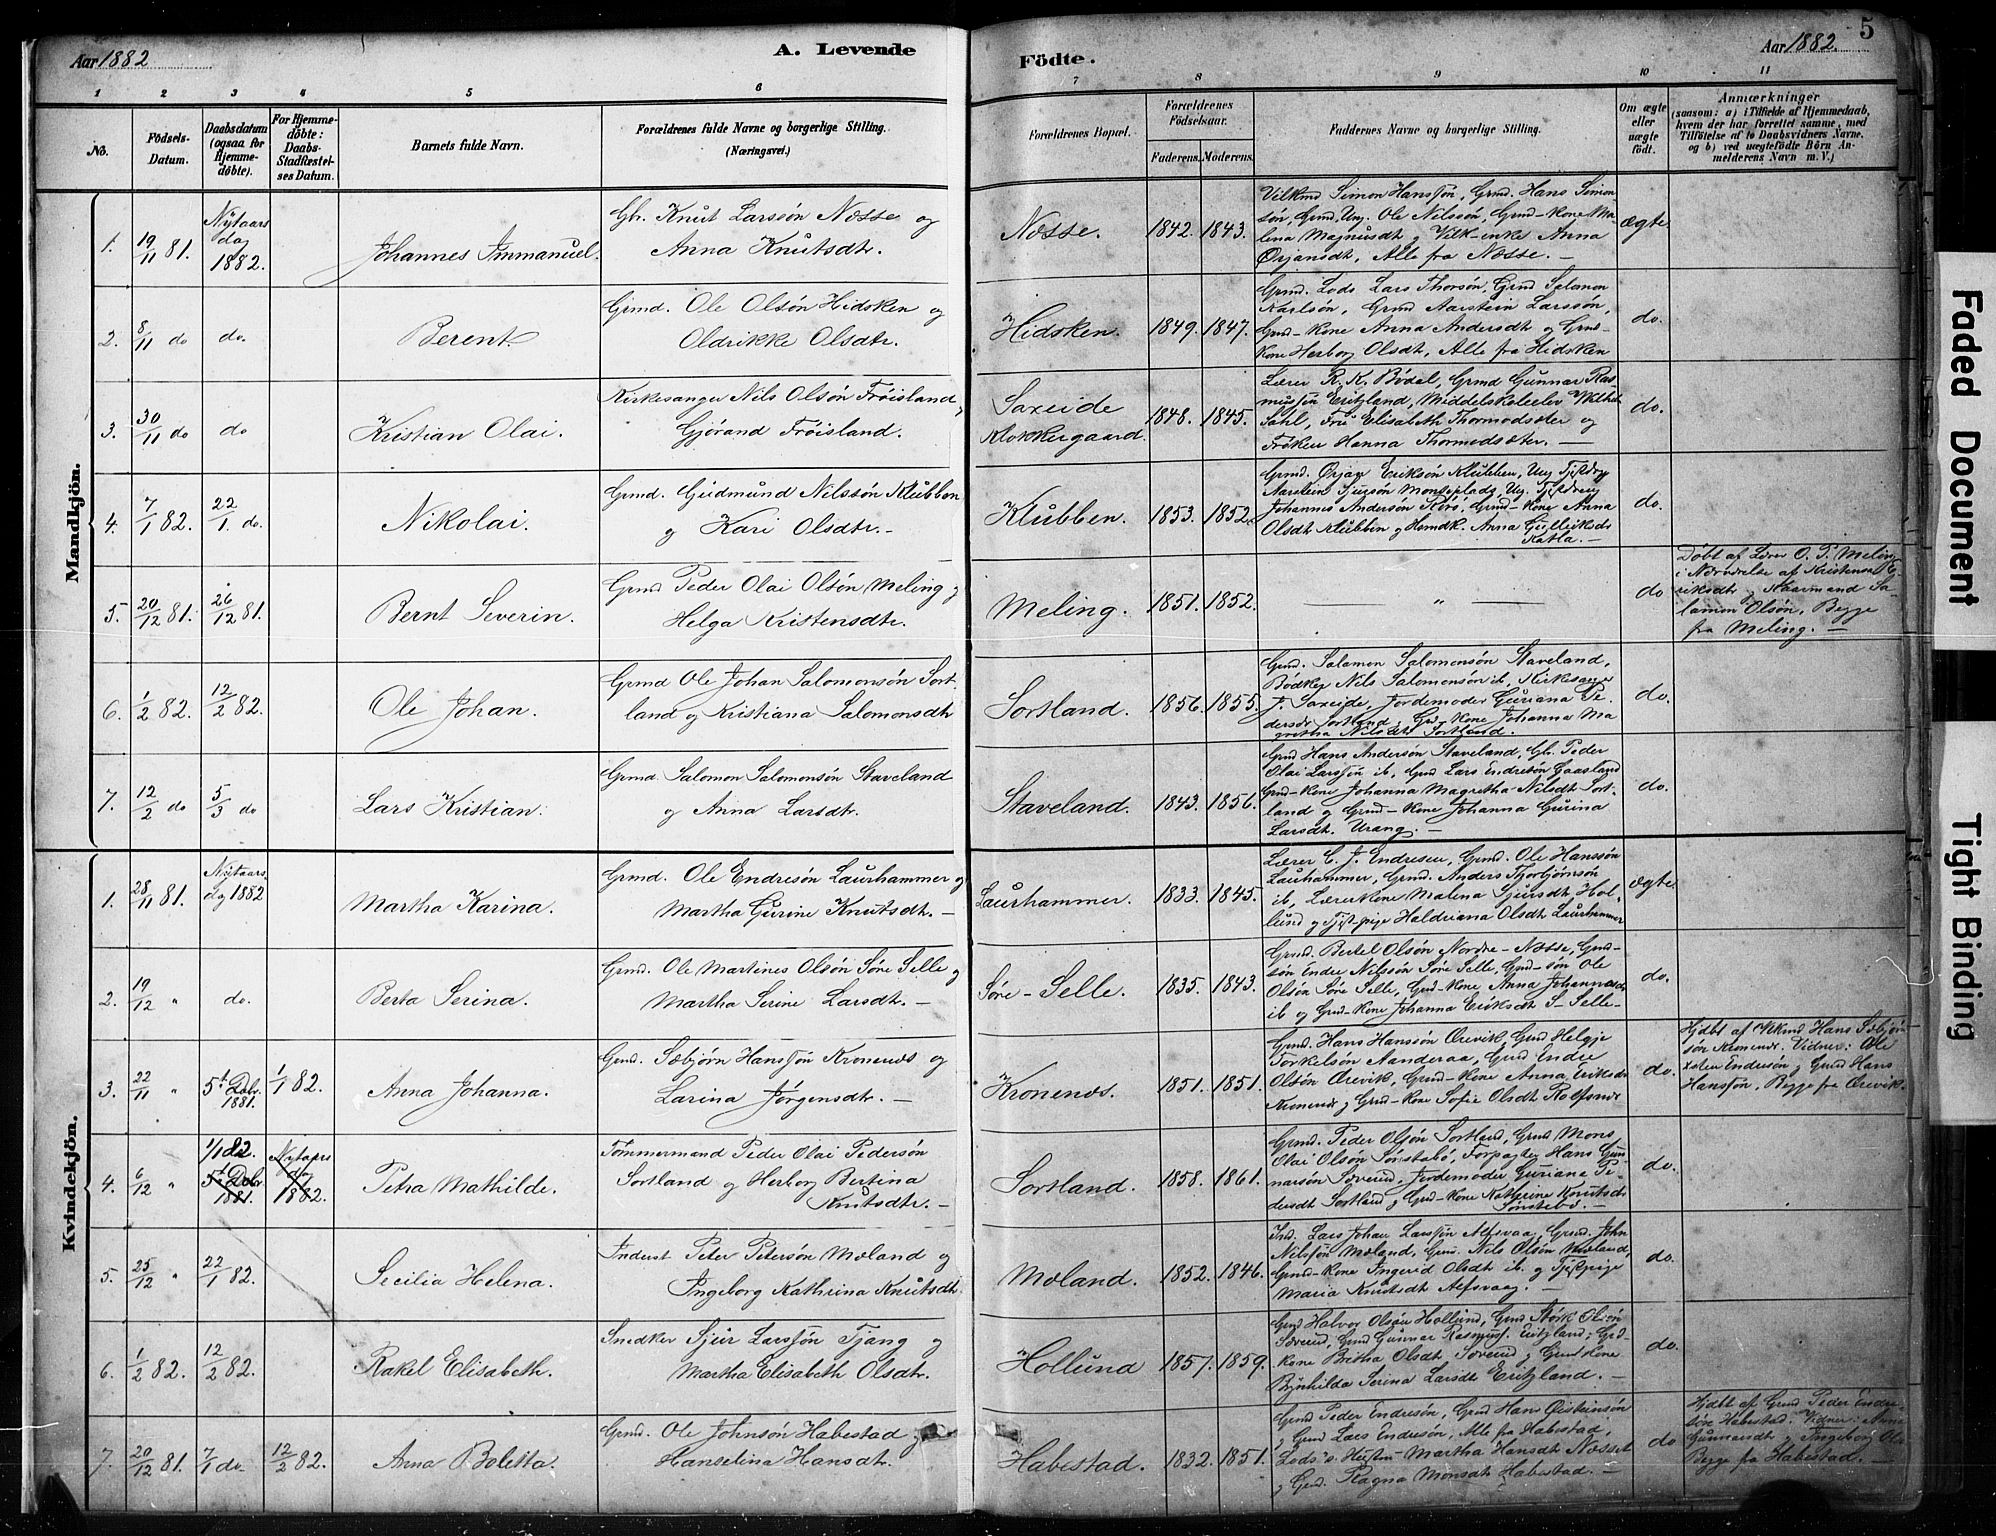 5
Aar 1882
A. Levende
Födte.
Aar 1882
1 2 3 4 5 6 7 8 9 10 11
No.
Födsels-Datum.
Daabsdatum (ogsaa for Hjemme-döbte).
For Hjemme-döbte: Daabs-Stadfæstel-ses Datum.
Barnets fulde Navn.
Forældrenes fulde Navne og borgerlige Stilling.
(Næringsvei.)
Forældrenes Bopæl.
Forældrenes Födselsaar.
Faderens. Moderens.
Faddernes Navne og borgerlige Stilling.
Om ægte eller uægte födt.
Anmærkninger
(saasom: a) i Tilfælde af Hjemmedaab, hvem der har forrettet samme, med Tilföielse af to Daabsvidners Navne. og b) ved uægtefödte Börn An-melderens Navn m. V.)
Mandkjön.
1. 19/11 81. Nytaars dag 1882. Johannes Immanuel. Gbr. Knut Larssön Næsse og
Anna Knutsdtr. Næsse. 1842. 1843.
Vilkmd Simon Hanssön, Grmd. Hans Simon
sön, Grmd. Ung. Ole Nilssön, Grmd-kone Ma
lena Magnusdt og Vilk-enke Anna
Örjansdt, Alle fra Næsse. – ægte.
2. 8/11 do do. Berent. Grmd. Ole Olsön Hidsken og
Oldrikke Olsdtr. Hidsken. 1849. 1847.
Grmd. Lods Lars Thorsön, Grmd Salomon
Karlsön, Grmd Aarstein Larssön,
Grmd-kone Anna Andersdt og Grmd-
kone Herborg Olsdt, Alle fra Hidsken do.
3. 30/11 do do Kristian Olai. Kirkesanger Nils Olsön Fröisland,
Gjörand Fröisland. Saxeide Klokkergaard. 1848. 1845.
Lærer R. K. Bödal, Grmd Gunnar Ras-
mussön Eritzland, Middelskoleelev Wilhelm
Dahl, Frü Elisabeth Thormodsæter og
Fröken Hanna Thormodsæter. – do.
4. 7/1 82. 22/1 do. Nikolai. Grmd. Gudmund Nilssön Klubben
og Kari Olsdtr. – Klubben. 1853. 1852.
Grmd. Örjan Eriksön Klubben, Ung Tjstdrg
Johannes Andersön Grmd-kone Anna
Olsdt Klubben og Anna do.
5. 20/12 81. 26/12 81. Bernt Severin. Grmd Peder Olai Olsön Meling og
Helga Kristensdtr. Meling. 1851. 1852. — „ — do
Döbt af Lærer O. P. Meling
i Nærværelse af Kristense E-
riksdt og Haarmand Sa-
lamon Olsön, Begge
fra Meling. –
6. 1/2 82. 12/2 82. Ole Johan. Grmd Ole Johan Salomonsön Sort-
land og Kristiana Salomonsdt Sortland. 1856. 1855.
Grmd. Salamon Salomonsön Staveland,
Bödker Nils Salomonsön ib, Kirkesanger
J. Saxeide, Jordemoder Guriana Pe-
dersdt Sortland, Grd-kone Johanna Ma
gretha Nilsdt Sortland. do.
7. 12/2 do 5/3 do Lars Kristian. Grmd Salomon Salomonsön Staveland
og Anna Larsdt. Staveland. 1843. 1856.
Grmd Hans Andersön Staveland, Gb. Peder
Olai Larssön ib, Grmd Lars Endresön Gaasland
Grmd-kone Johanna Magretha Nilsdt Sort-
land og Grmd-kone Johanna Gurina
Larsdt. Urang. – do.
Kvindekjön.
1. 28/11 81. Nytaars dag 1882 Martha Karina. Grmd. Ole Endresön Laurhammer og
Martha Gurine Knutsdt. – Laurhammer. 1833. 1845.
Lærer C. J. Endresen, Grmd. Ole Hanssön
Lauhammer, Grmd. Anders Thorbjörnsön
ib, Lærerkone Malena Sjursdt Hol-
lund og Tjst-pige Haldriana Olsdt Laurhammer ægte.
2. 19/12 „ do. Berta Serina. Grmd. Ole Martines Olsön Söre Selle og
Martha Serine Larsdt. – Söre-Selle. 1835. 1843.
Grmd. Bertel Olsön Nordre-Næsse, Grmd-
sön Endre Nilssön Söre Selle, Grmd-sön Ole
Olsön Söre Selle, Grd-kone Anna Johannesdt
ib og Grmd-kone Johanna Eriksdt S-Selle- do.
3. 22/11 „ 5t Dcbr. 1881. 1/1 82. Anna Johanna. Grmd. Sæbjörn Hanssön Kronenæs og
Larina Jörgensdtr. – Kronenæs. 1851. 1851.
Grmd. Hans Hanssön Örevik, Grmd Helgje
Torkelsön Aanderaa, Grmd Endre
Olsön Örevik, Grmd-kone Anna Eriksdt
Kronenæs og Grmd-kone Sofie Olsdt Rolfsnæs do.
Hjdbt af Vilkmd Hans Sæbjörn
sön Kronenæs. Vidner: Ole
Endresön og Grmd Hans
Hanssön, Begge fra Örevik.
4. 6/12 „ 1/1 82. 5t Dcbr 1881. Nytaars dag 1882. Petra Mathilde. Tömmermand Peder Olai Pedersön
Sortland og Herborg Bertina
Knutsdtr. – Sortland. 1858. 1861.
Grmd. Peder Olsön Sortland, Grmd Mons
Olai Olsön Sönstabö, Forpagter Hans Gun
narsön Særend, Jordemoder Guriane Pe-
dersdt Sortland og Grd-kone Kathrine Knutsdt
Sönstebö. – do.
5. 25/12 „ 22/1 82. Secilia Helena. Inderst Peter Petersön Mæland og
Ingeborg Kathrina Knutsdt. Mæland. 1852. 1846.
Ind. Lars Johan Larssön Alfsvaa, Grmd. John
Nilssön Mæland, Grmd. Nils Olsön Mæland,
Grmd-kone Ingerid Olsdt ib. og Tjstpige
Maria Knutsdt Alfsvaag. – do.
6. 1/2 82. 12/2 82. Rakel Elisabeth. Snedker Sjur Larssön Tjang og
Martha Elisabeth Olsdtr. Hollund 1857. 1859.
Grmd Halvor Olsön Hollund, Grmd Störk Olsön
Særend, Grmd Gunnar Rasmuss. Eritzland, Grd-
kone Britha Olsdt Særend og Grmd kone
Bynhilda Serina Larsdt Eritzland. – do.
7. 20/12 81. 7/1 do. 12/2 82. Anna Boletta. Grmd. Ole Johnsön Habestad og
Hanselina Hansdt. Habestad. 1832. 1851.
Grmd Peder Endresön, Grmd Hans Öisteinsön
og Grmd Lars Endresön, Alle fra Habestad,
Lods's Hustru Martha Hansdt Næsset
og Grmd. Ragna Monsdt Habestad. – do
Hjdbt af Grmd Peder Endre
sön Habestad. Vidner: Anna
Gunnarsdt og Ingeborg Ols
Begge fra Habestad. –
Faded Document
Tight Binding